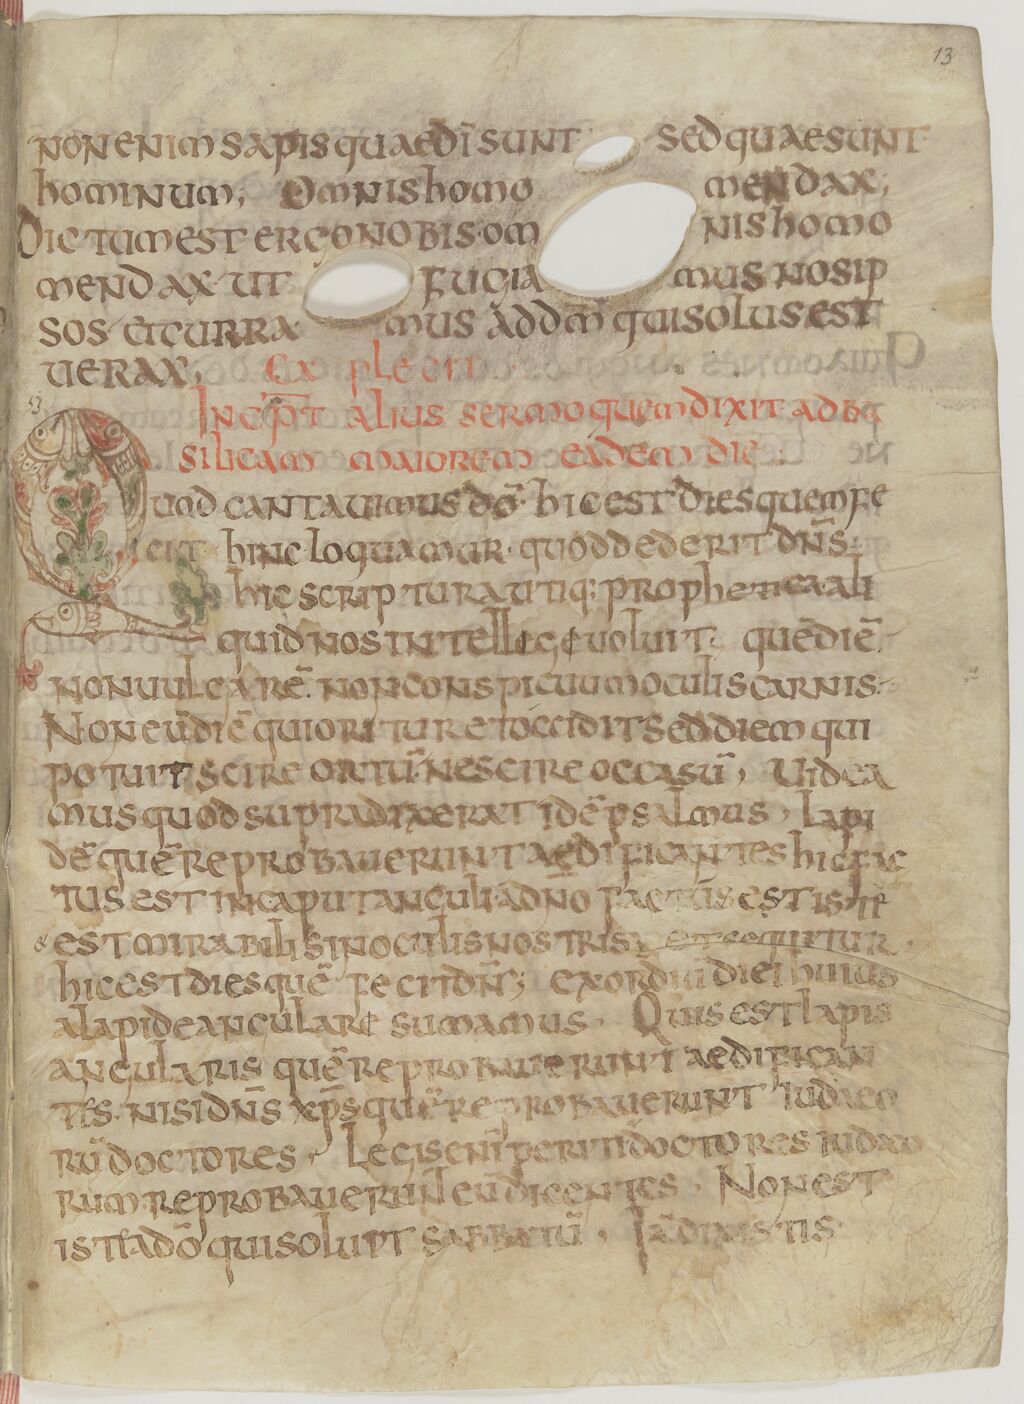 13
non enim sapis quae dī sunt sed quae sunt
hominum; Omnis homo mendax;
Dictum est ergo nobis · omnis homo
mendax · ut fugiamus nos ip
sos · et curramus ad dm̄ qui solus est
uerax; Explicit
53
Incip̄t alius sermo quem dixit ad ba
silicam maiorem eadem die
Quod cantauimus dō · hic est dies quem fe
cit hinc loquamur · quod dederit dn̄s
hic scriptura utiq; prophetica · ali
quid nos intellege uoluit; quē diē
non uulgarē · non conspicuum oculis carnis ·
Non eū diē qui oritur et occidit sed diem qui
potuit scire ortū · nescire occasū, Uidea
mus quod supra dixerat idē psalmus, Lapi
dē quē reprobauerunt aedificantes hic fac
tus est in caput anguli · a dn̄o factus est iste
& est mirabilis in oculis nostris; et sequitur ·
hic est dies quē fecit dn̄s; exordiū diei huius
a lapide angulare sumamus · Quis est lapis
angularis quē reprobauerunt aedifican
tes · nisi dn̄s xp̄s quē reprobauerunt iudaeo
rū doctores, Legis enī periti doctores iudaeo
rum reprobauerunt eū dicentes · Non est
iste a dō qui soluit sabbatū · Iā dixistis